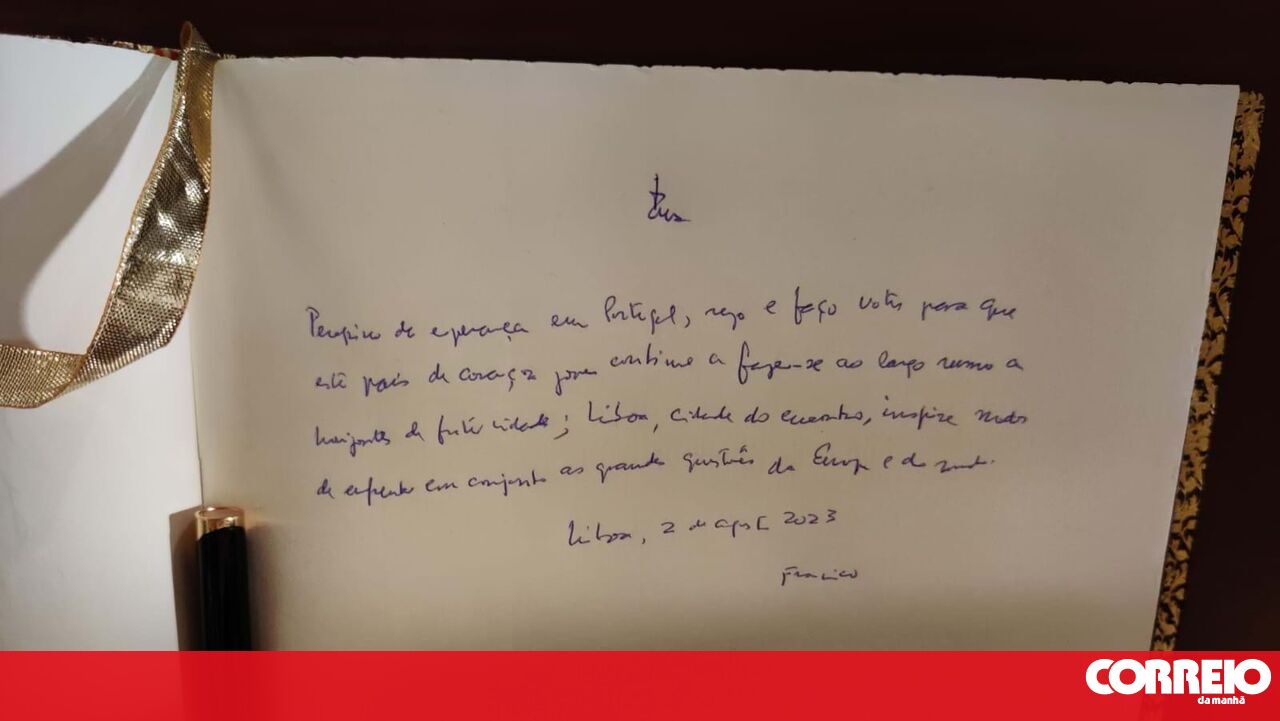 Peregrino de esperança em Portugal, rezo e faço votos para que
este país de coração jovem continue a fazer-se ao largo rumo a
horizontes de fraternidade; Lisboa, cidade do encontro, inspire modos
de enfrentar em conjunto as grandes questões da Europa e do mundo.
Lisboa, 2 de agosto 2023
Francisco
CORREIO
da manhã